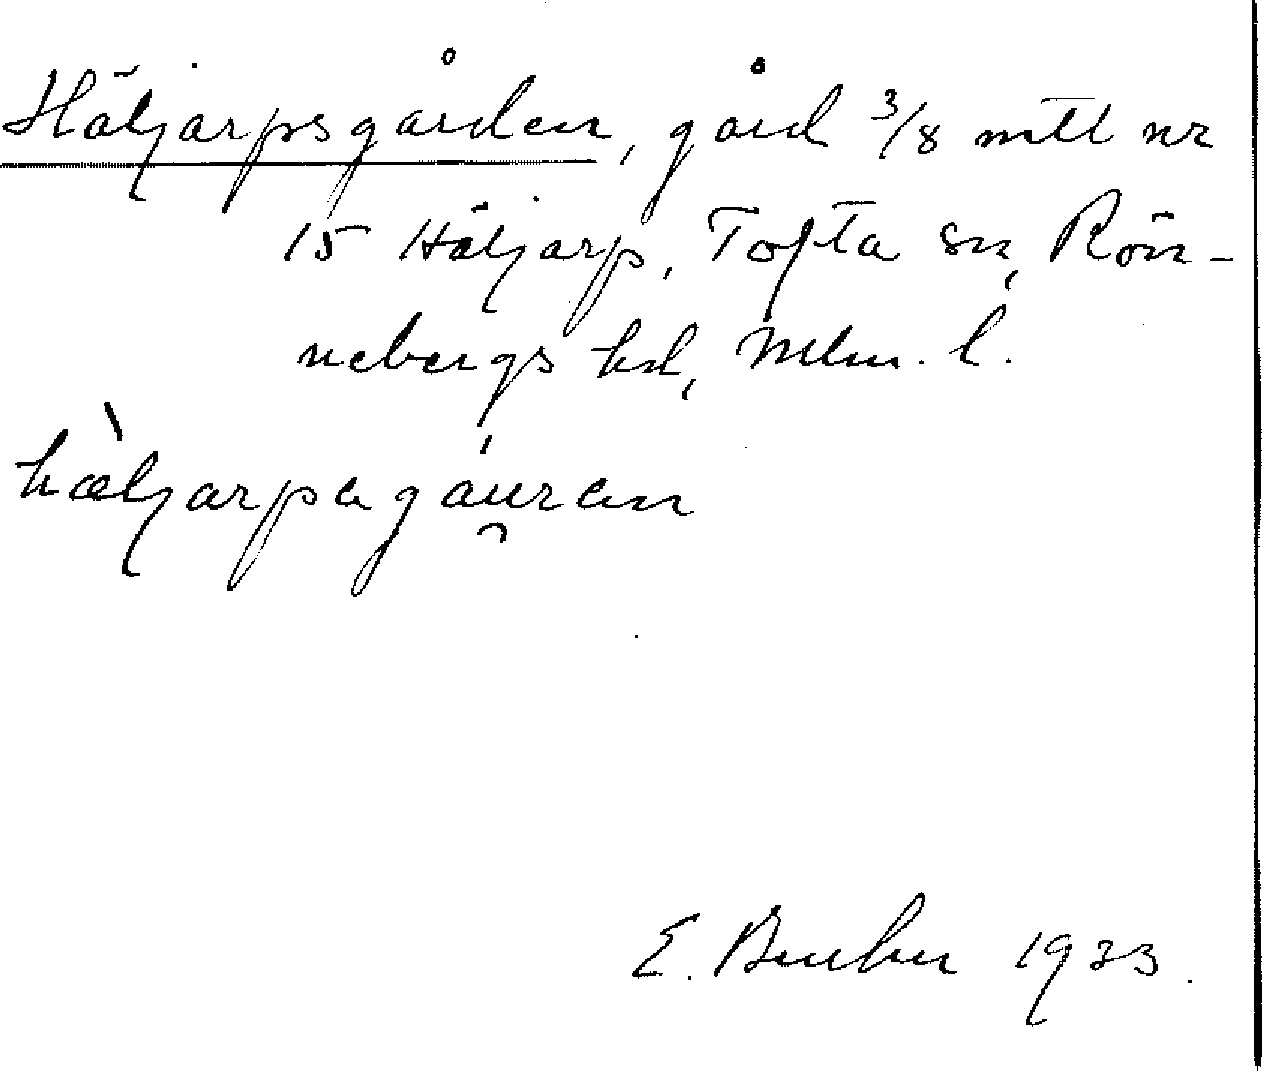 Häljarpsgården, gård 3/8 mtl nr
15 Häljarp, Tofta sn, Rön-
nebergs hd, Mlm. l.
hæ̀ljarpagáu̯ran
E. 1933.